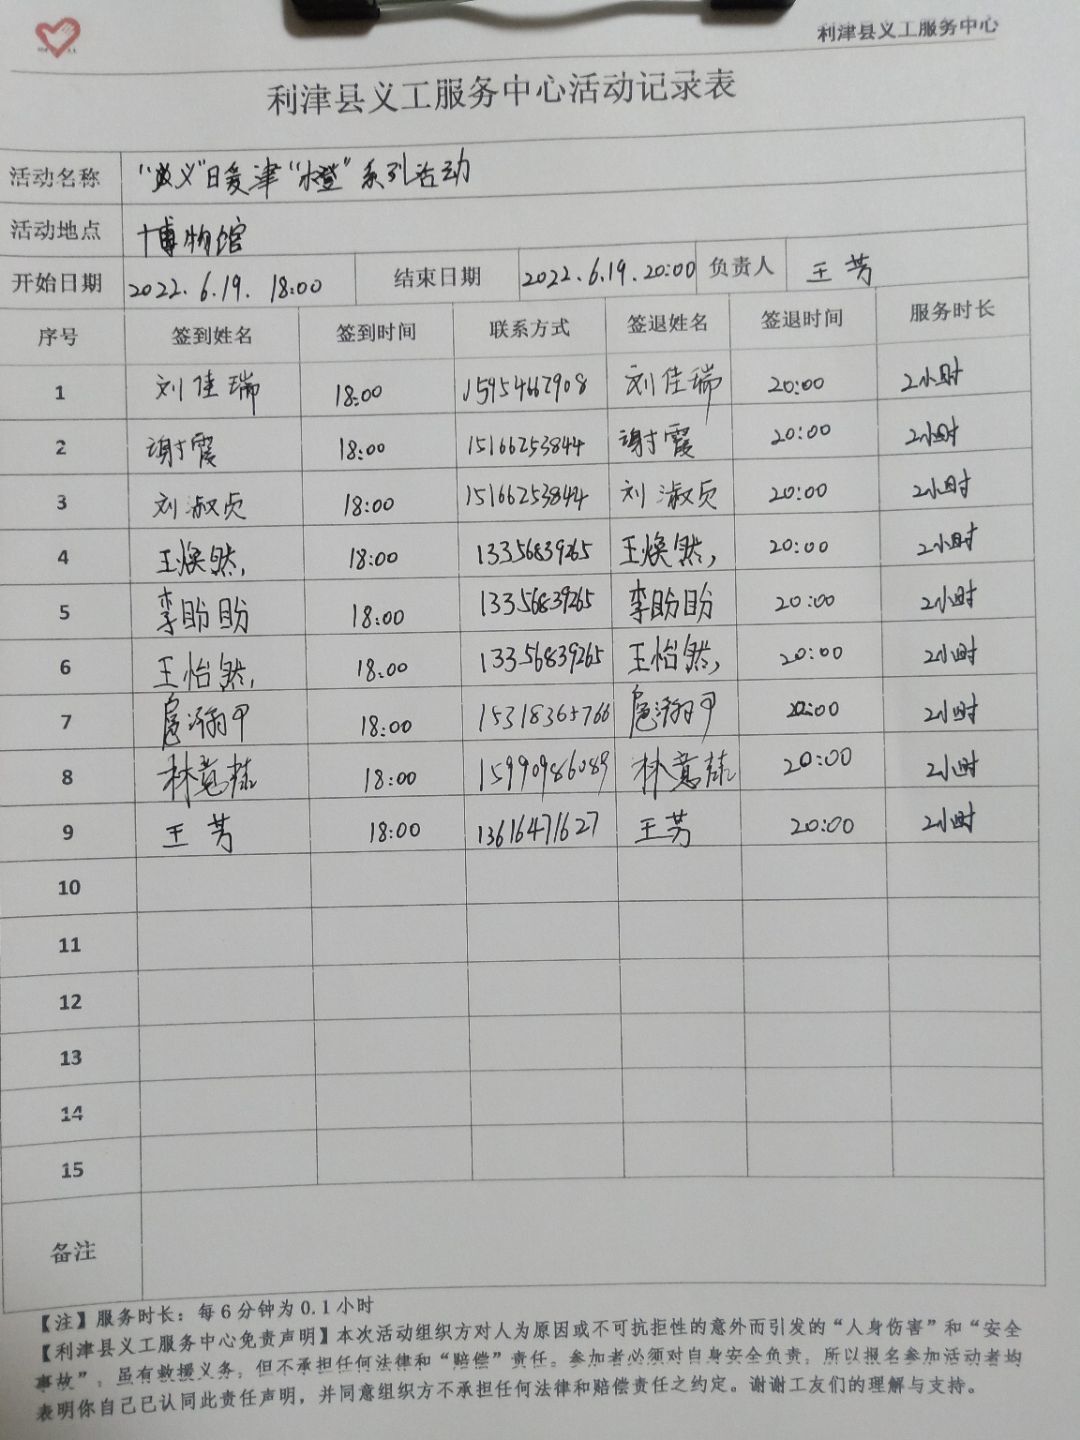 利津县义工服务中心
利津县义工服务中心活动记录表
活动名称 "益义"日爱津"橙"系列活动
活动地点 博物馆
开始日期 2022.6.19. 18:00 结束日期 2022.6.19.20:00 负责人 王芳
序号 签到姓名 签到时间 联系方式 签退姓名 签退时间 服务时长
1 刘佳瑞 18:00 15954667908 刘佳瑞 20:00 2小时
2 谢霞 18:00 15166253844 谢霞 20:00 2小时
3 刘淑贞 18:00 15166253844 刘淑贞 20:00 2小时
4 王焕然, 18:00 13356839265 王焕然, 20:00 2小时
5 李盼盼 18:00 13356839265 李盼盼 20:00 2小时
6 王怡然, 18:00 13356839265 王怡然, 20:00 2小时
7 18:00 15318365766 20:00 2小时
8 林意 18:00 15990986089 林意 20:00 2小时
9 王芳 18:00 13616471627 王芳 20:00 2小时
10
11
12
13
14
15
备注
【注】服务时长：每6分钟为0.1小时
【利津县义工服务中心免责声明】本次活动组织方对人为原因或不可抗拒性的意外而引发的“人身伤害”和“安全
事故”，虽有救援义务，但不承担任何法律和“赔偿”责任。参加者必须对自身安全负责，所以报名参加活动者均
表明你自己已认同此责任声明，并同意组织方不承担任何法律和赔偿责任之约定。谢谢工友们的理解与支持。